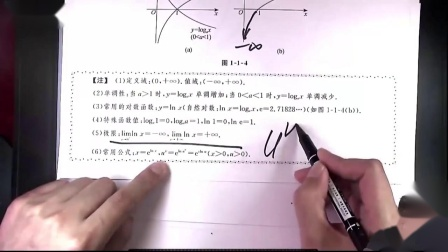 y=logₐx
(0<a<1)
O 1 x
O 1 x
-∞
(a) (b)
图 1-1-4
【注】(1)定义域:(0,+∞).值域:(-∞,+∞).
(2)单调性:当 a>1 时,y=logₐx 单调增加;当 0<a<1 时,y=logₐx 单调减少.
(3)常用的对数函数:y=ln x(自然对数:ln x=logₑx,e=2.71828…)(如图 1-1-4(b)).
(4)特殊函数值:logₐ1=0,logₐa=1,ln 1=0,ln e=1.
(5)极限:lim ln x=-∞,lim ln x=+∞.
(6)常用公式:x=e^{ln x},u^v=e^{ln u^v}=e^{vln u}(x>0,u>0).